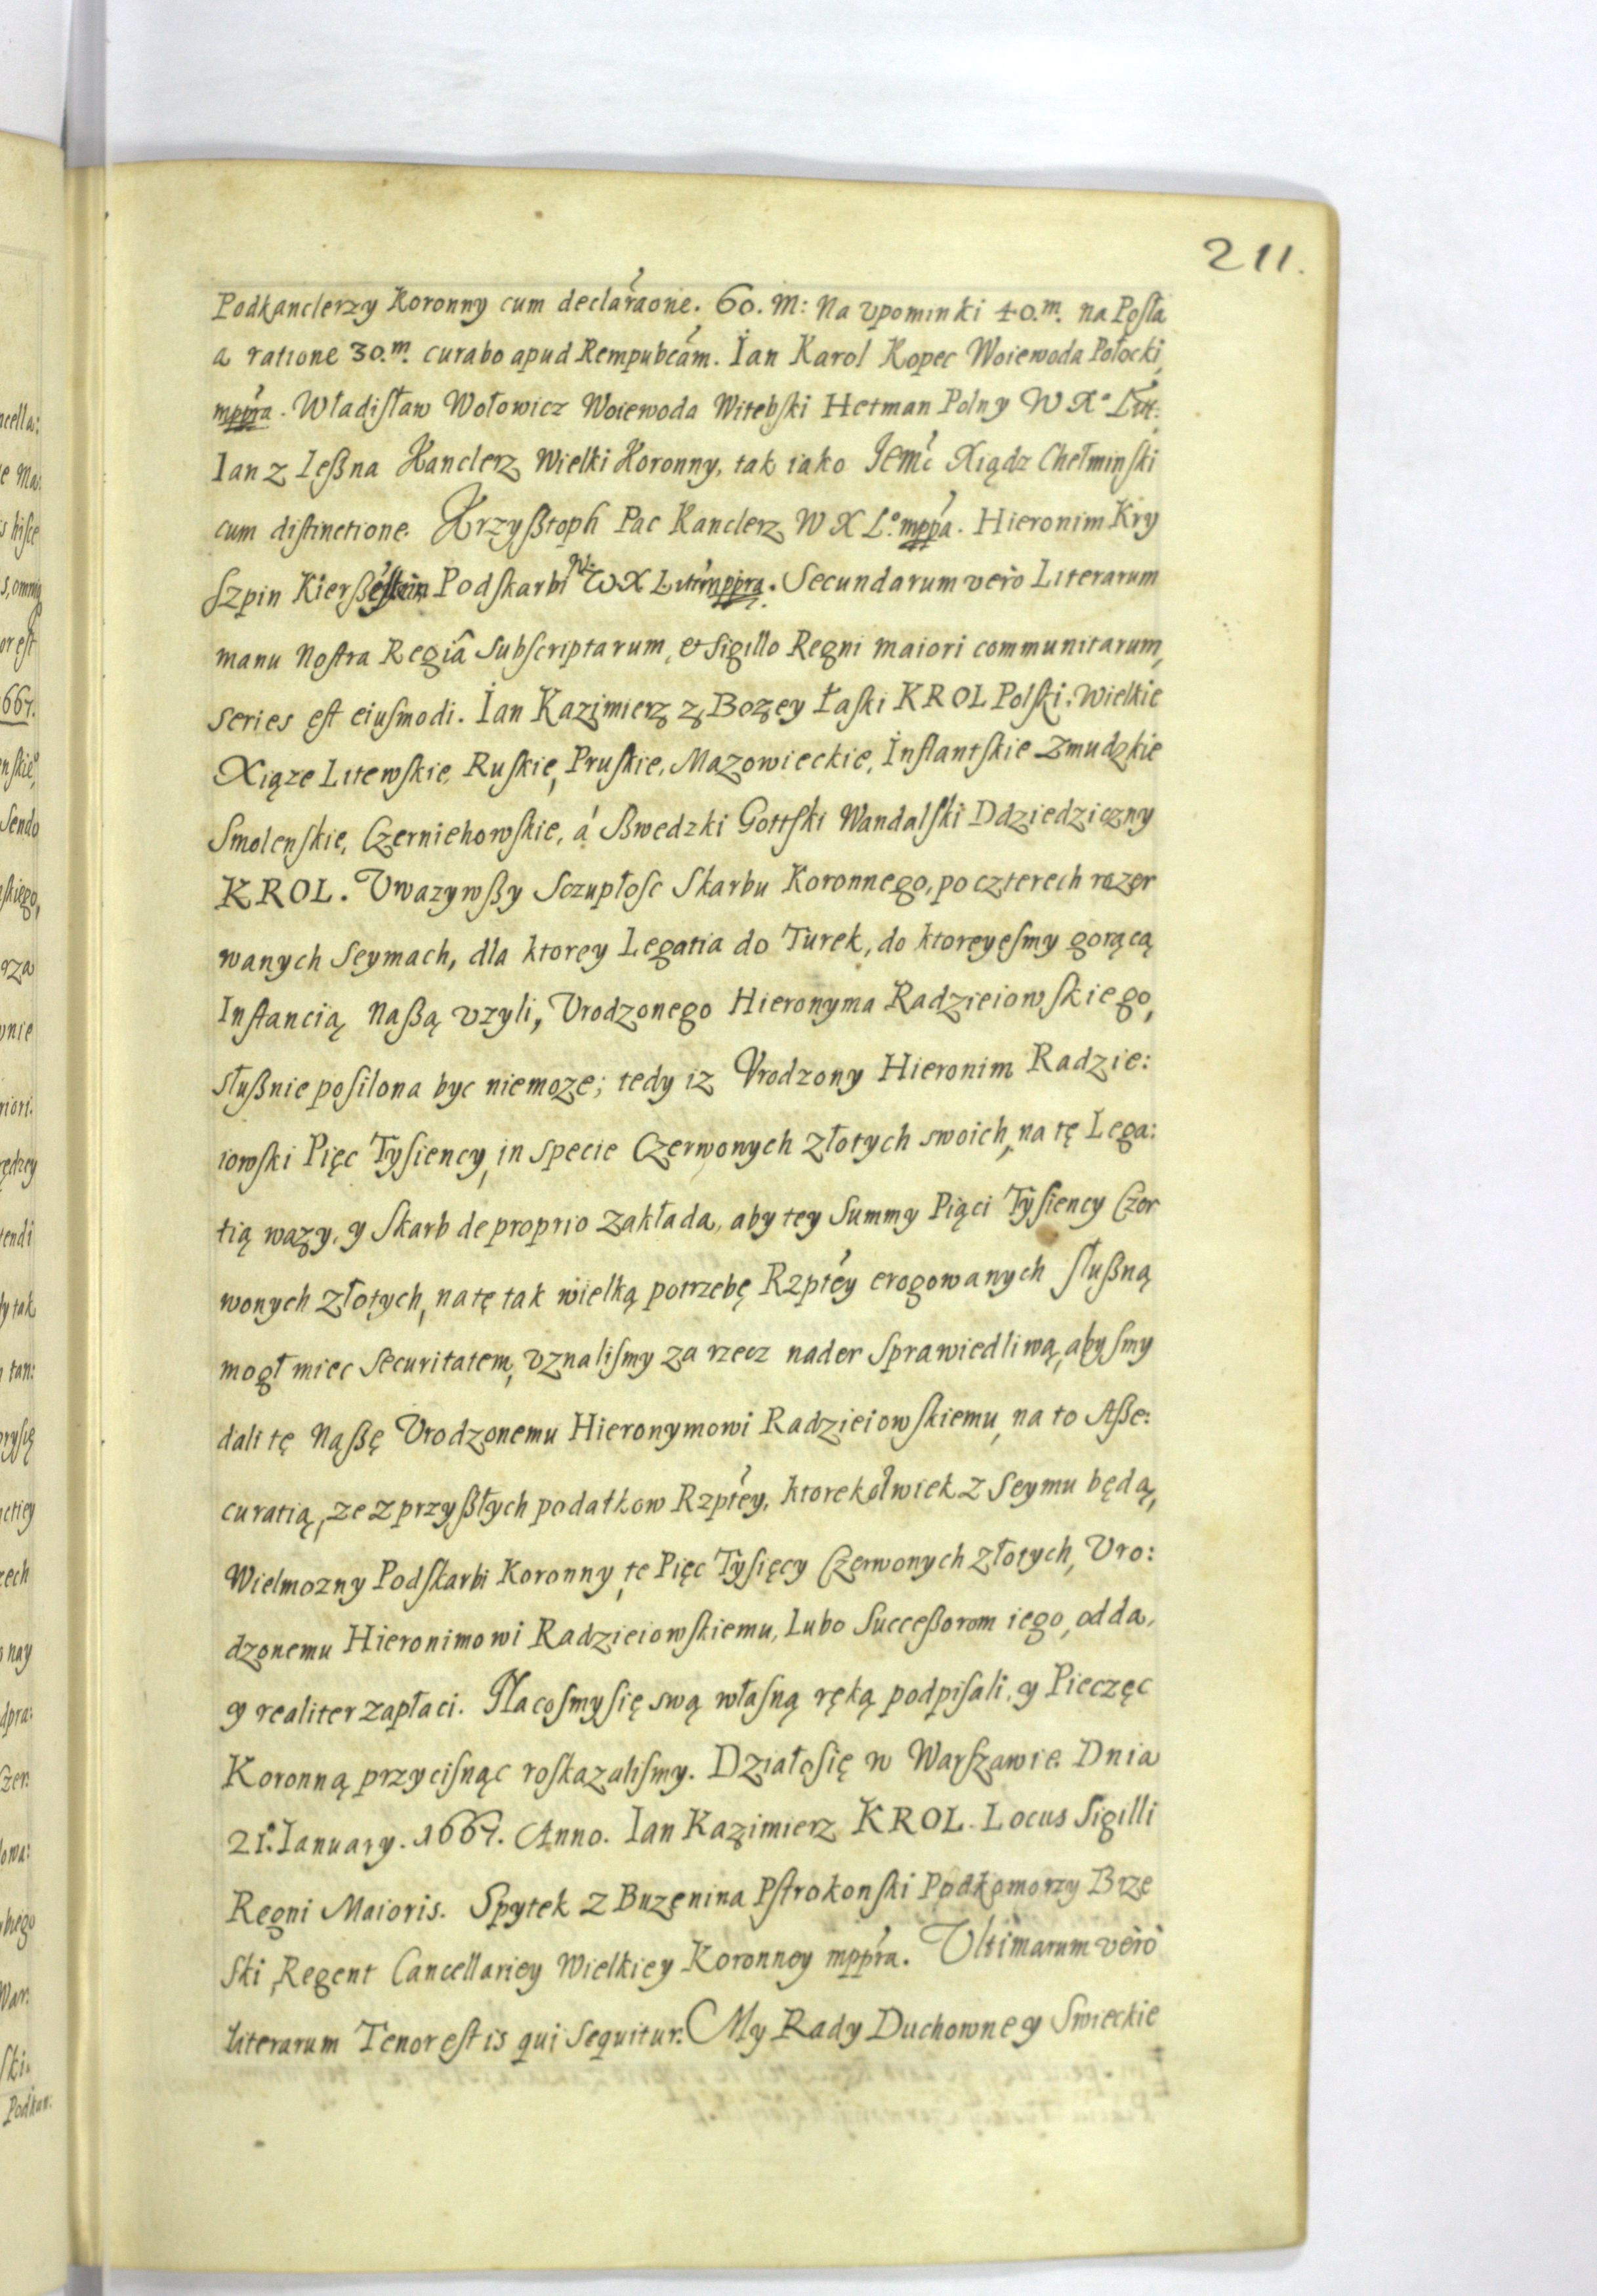 211.
Podkanclerzy Koronny cum declaraone. 60. m: Na upominki 40.m. na Posła
a ratione 30.m. curabo apud Rempubcam. Ian Karol Kopec Woiewoda Połocki,
mppra. Władisław Wołowicz Woiewoda Witebski Hetman Polny W X° Litt:
Ian z Leßna Kanclerz Wielki Koronny, tak iako Jemć Xiądz Chełminski
cum distinctione. Krzyßtoph Pac Kanclerz W X L° mppa. Hieronim Kry
szpin Kierß Podskarbi W. W X Litt mppra. Secundarum verò Literarum
manu Nostra Regiâ subscriptarum, et Sigillo Regni maiori communitarum,
series est eiusmodi. Ian Kazimierz z Bozey Łaski KROL Polski, Wielkie
Xiąze Litewskie, Ruskie, Pruskie, Mazowieckie, Inflantskie Zmudzkie
Smolenskie, Czerniehowskie, á Swedzki Gottski Wandalski Ddziedziczny
KROL. Vwazywßy Sczupłosc Skarbu Koronnego, po czterech rozer
wanych Seymach, dla ktorey Legatia do Turek, do ktoreyesmy gorącą
Instancią Naßą vzyli, Vrodzonego Hieronyma Radzieiowskiego,
słußnie posilona byc niemoze; tedy iz Vrodzony Hieronim Radzie:
iowski Pięc Tysiency, in specie Czerwonych złotych swoich, na tę Lega:
tią wazy, y Skarb de proprio zakłada, aby tey Summy Piąci Tysiency Czer
wonych złotych, na tę tak wielką potrzebę Rzptey erogowanych słußną
mogł miec securitatem, vznalismy za rzecz nader sprawiedliwą, abysmy
dali tę Naßę Vrodzonemu Hieronymowi Radzieiowskiemu, na to Aße:
curatią, ze z przyßłych podatkow Rzptey, ktorekolwiek z Seymu będą,
Wielmozny Podskarbi Koronny, te Pięc Tysięcy Czerwonych złotych, Vro:
dzonemu Hieronimowi Radzieiowskiemu, Lubo Succeßorom iego, odda,
y realiter zapłaci. Na cosmy się swą własną ręką podpisali, y Pieczęc
Koronną przycisnąc roskazalismy. Działo się w Warszawie. Dnia
21°. Ianuary. 1667. Anno. Ian Kazimierz KROL. Locus Sigilli
Regni Maioris. Spytek z Buzęnina Pstrokonski Podkomorzy Brze
ski, Regent Cancellariey Wielkiey Koronney mppra. Vltimarum verò
literarum Tenor est is qui sequitur. My Rady Duchowne y Swieckie